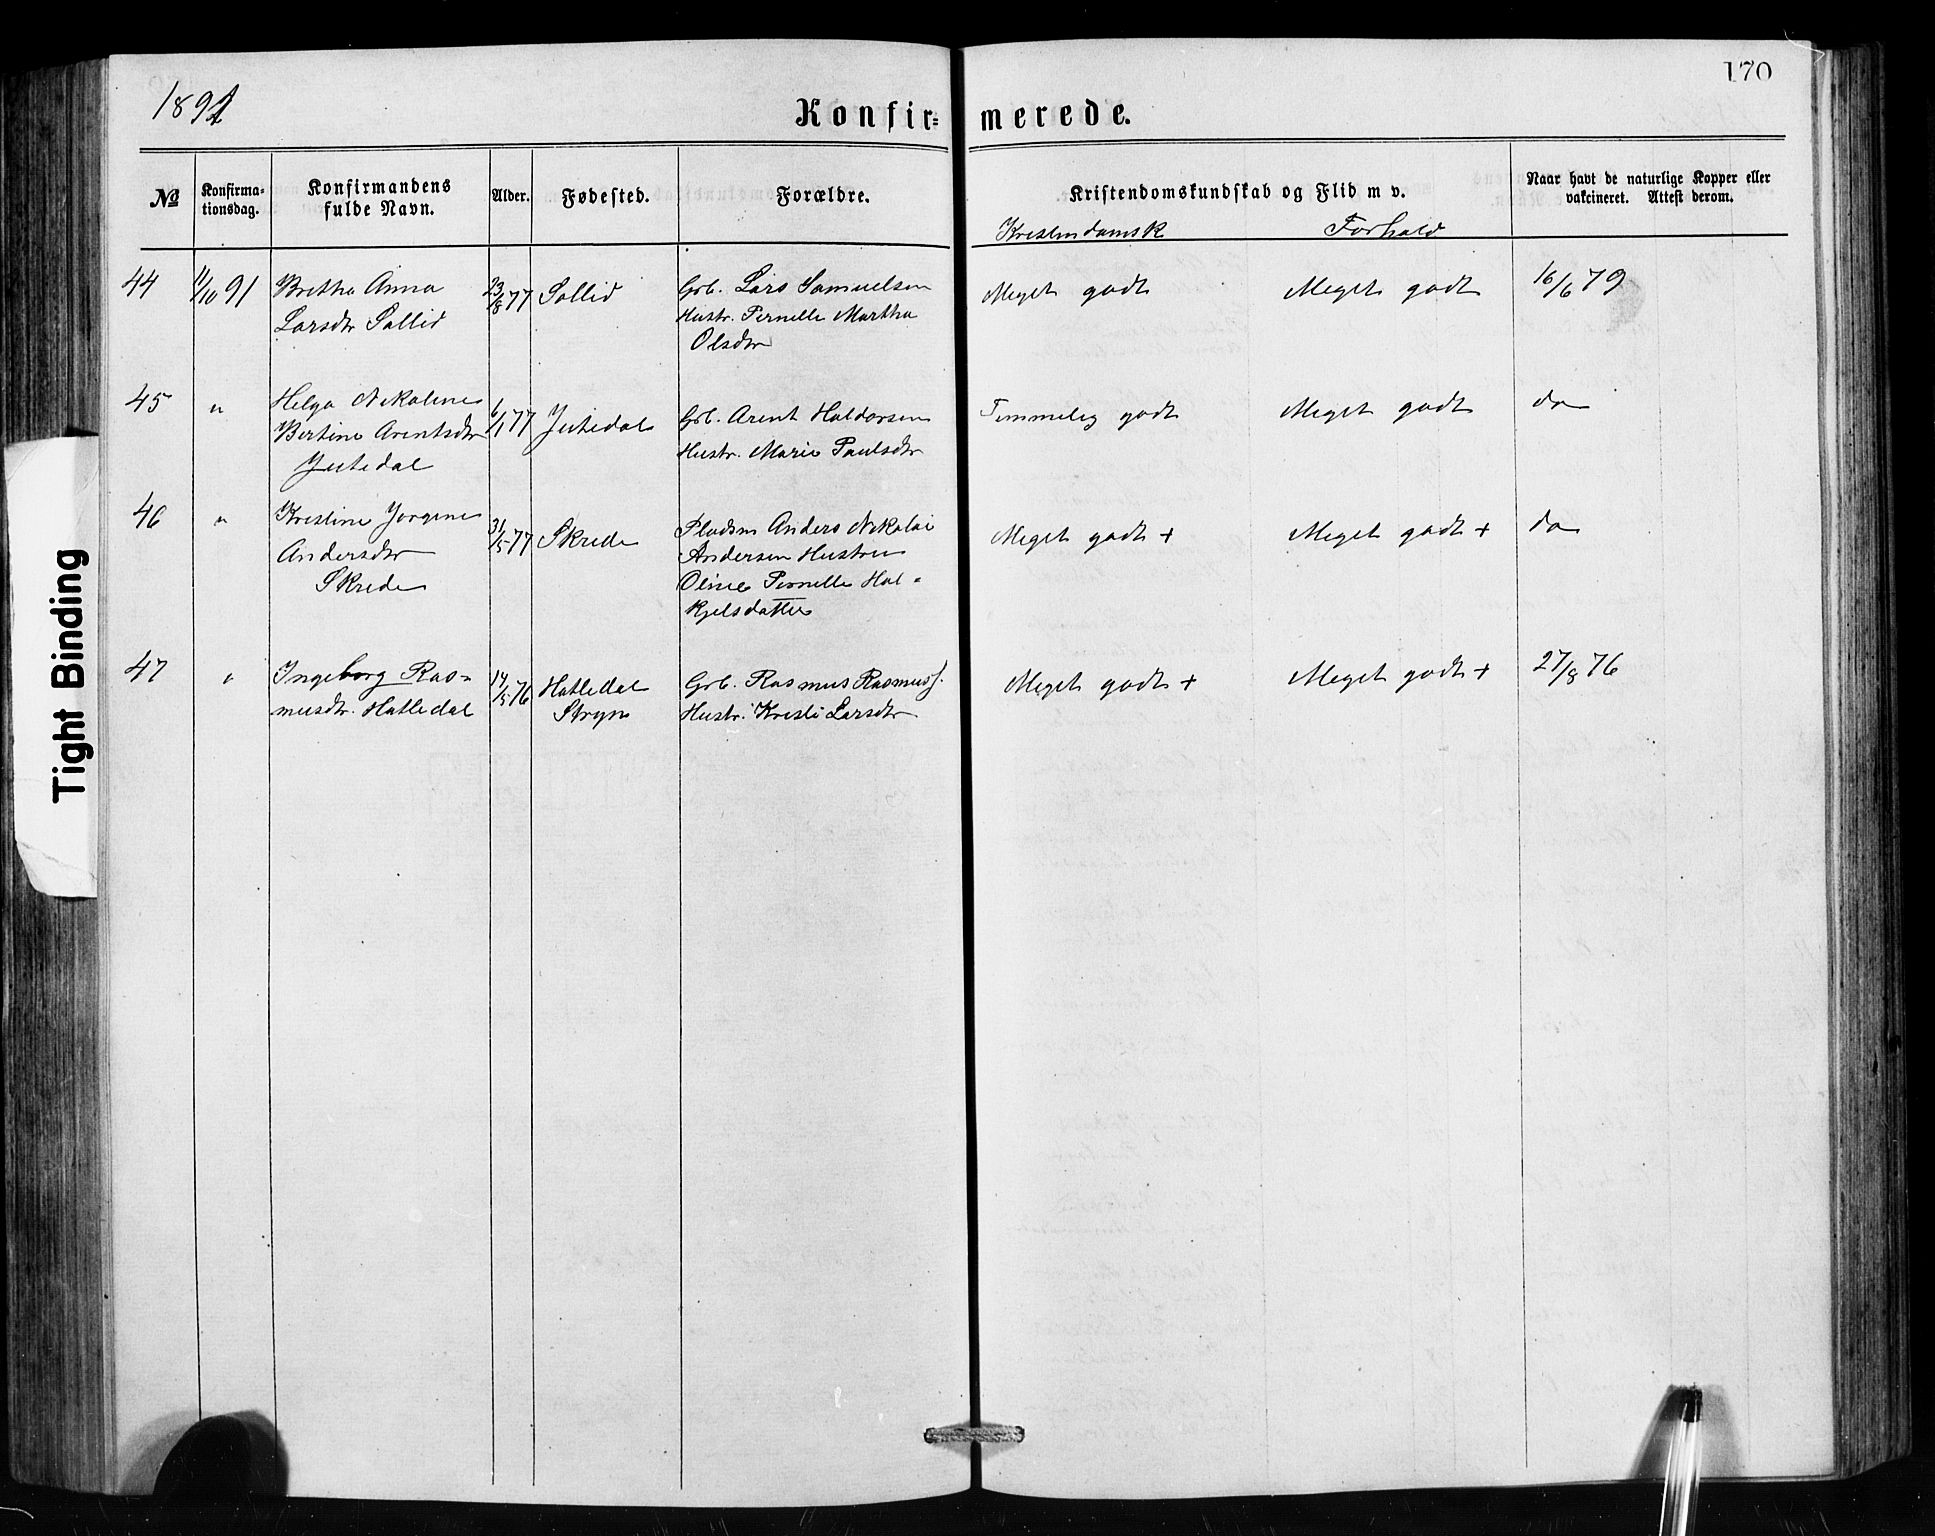 1891
170
Konfir= merede.
№
Konfirma-
tionsdag.
Konfirmandens
fulde Navn.
Alder.
Fødested.
Forældre.
Kristendomskundskab og Flid m v.
Naar havt de naturlige Kopper eller
vakcineret. Attest derom.
Kristendomsk Forhold
44 11/10 91 Brithe Anna 23/8 77 Sollid Grb. Lars Samuelsen Meget godt Meget godt 16/6 79
Larsdtr Sollid Hustr. Pernille Martha
Olsdtr
45 " Helga Nikoline 6/1 77 Jutedal Grb. Arent Haldorsen Temmelig godt Meget godt do
Bertine Arentsdtr Hustr. Marie Paulsdtr
Jutedal
46 " Kristine Jorgine 31/5 77 Skrede Pladsm Anders Nikolai Meget godt + Meget godt + do
Andersdtr Andersen Hustru
Skrede Oline Pernille Hal-
kjelsdatter
47 " Ingeborg Ras- 14/5 76 Hatledal Grb. Rasmus Rasmusf. Meget godt + Meget godt + 27/8 76
musdtr. Hatledal Stryn Hustr. Kristi Larsdtr
Tight Binding